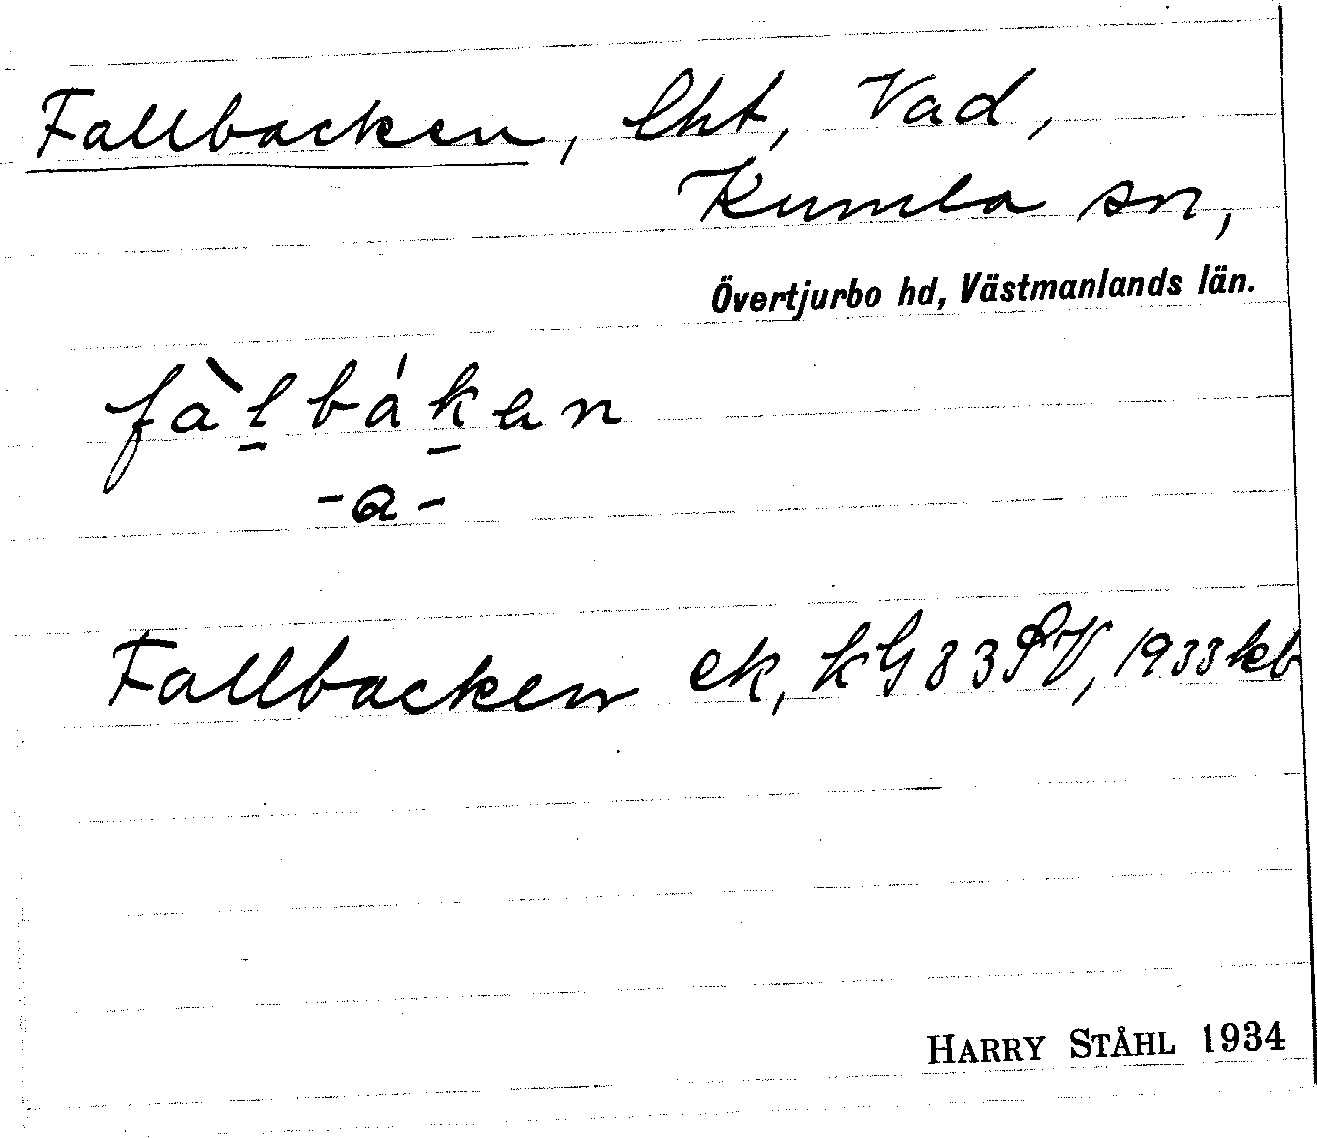 Fallbacken, lht, Vad,
Kumla sn,
Övertjurbo hd, Västmanlands län.
fàl̠bák̠en
-a-
Fallbacken ek, kG 83 SV, 1933 kb
HARRY STÅHL 1934